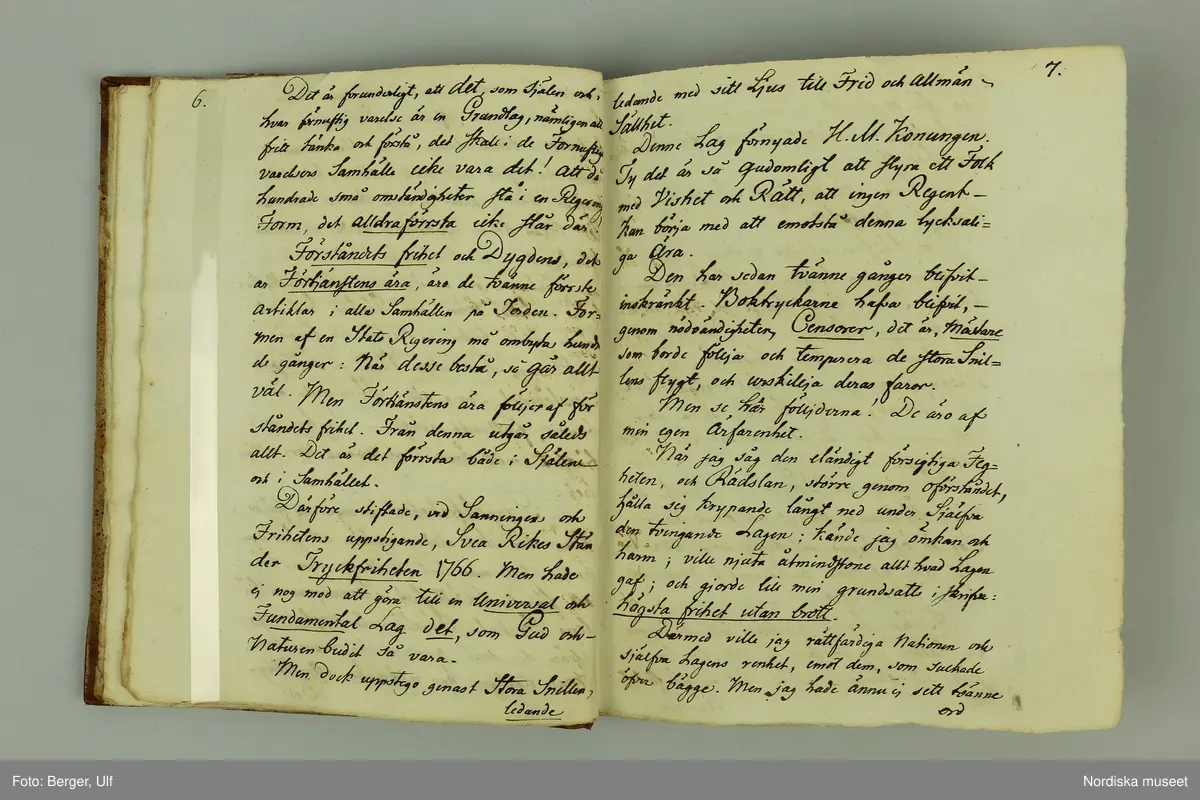 6.
Det är förunderligt, att det, som Själen och
hvar förnuftig varelse är en Grundlag, nämligen att
fritt tänka och förstå, det skall i de Förnuftig
varelsers Samhälle icke vara det! Att då
hundrade små omständigheter stå i en Regering
Form, det alldraförrsta icke står där!
Förståndets frihet och Dygdens, det
är Förtjänstens ära, äro de tvänne förrste
Artiklar i alla Samhällen på Jorden. For-
men af en Stats Regering må ombytas hundra
de gånger: När desse bestå, så går allt
väl. Men Förtjänstens ära följer af för
ståndets frihet. Från denna utgår således
allt. Det är det förrsta både i Själen
och i Samhället.
Därföre stiftade, vid Sanningens och
Frihetens uppstigande, Svea Rikes Stän
der Tryckfriheten 1766. Men hade
ej nog mod att göra till en Universal och
Fundamental Lag det, som Gud och
Naturen budit så vara.
Men dock uppstego genast Stora Snillen,
ledande
7.
ledande med sitt Ljus till Frid och Allmän
Sällhet.
Denne Lag förnyade H. M. Konungen.
Ty det är så gudomligt att styra ett Folk
med Vishet och Rätt, att ingen Regent
kan börja med att emotstå denna lycksali=
ga Ära.
Den har sedan tvänne gånger blifvit
inskränkt. Boktryckarne hafva blifvit,
genom nödvändigheten, Censorer, det är, Mästare
som borde följa och temperera de stora Snil=
lens flygt, och urskilja deras faror.
Men se här följderna! De äro af
min egen Ärfarenhet.
När jag såg den eländigt försigtiga Feg=
heten, och Rädslan, större genom oförståndet,
hålla sig krypande långt ned under Sjelfva
den tvingande Lagen; kände jag ömkan och
harm; ville njuta åtminstone allt hvad Lagen
gaf; och gjorde till min grundsatts i skrifva:
högsta frihet utan brott.
Dermed ville jag rättfärdiga Nationen och
sjelfva Lagens renhet, emot dem, som suckade
öfver bägge. Men jag hade ännu ej sett tvänne
ord
Foto: Berger, Ulf
Nordiska museet